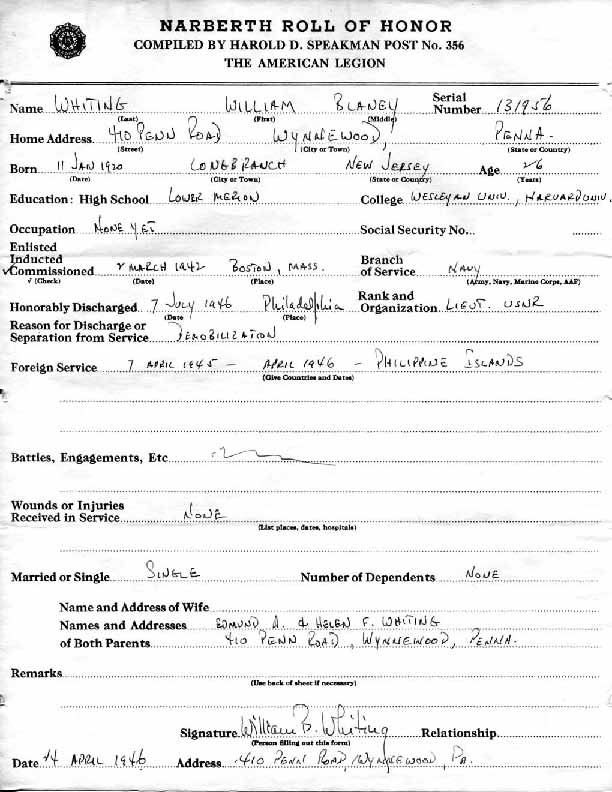 NARBERTH ROLL OF HONOR
COMPILED BY HAROLD D. SPEAKMAN POST No. 356
THE AMERICAN LEGION
Name WHITING WILLIAM BLANEY Serial Number 131956
(Last) (First) (Middle)
Home Address 410 PENN ROAD WYNNEWOOD, PENNA.
(Street) (City or Town) (State or Country)
Born 11 JAN 1920 LONGBRANCH NEW JERSEY Age 26
(Date) (City or Town) (State or Country) (Years)
Education: High School LOWER MERION College WESLEYAN UNIV., HARVARD UNIV.
Occupation NONE YET Social Security No.
Enlisted
Inducted Branch
✓Commissioned 2 MARCH 1942 BOSTON, MASS. of Service NAVY
√ (Check) (Date) (Place) (Army, Navy, Marine Corps, AAF)
Honorably Discharged 7 JULY 1946 Philadelphia Rank and Organization LIEUT. USNR
(Date (Place)
Reason for Discharge or
Separation from Service DEMOBILIZATION
Foreign Service 7 APRIL 1945 — APRIL 1946 — PHILIPPINE ISLANDS
(Give Countries and Dates)
Battles, Engagements, Etc
Wounds or Injuries
Received in Service NONE
(List places, dates, hospitals)
Married or Single SINGLE Number of Dependents NONE
Name and Address of Wife
Names and Addresses EDMUND A. & HELEN F. WHITING
of Both Parents 410 PENN ROAD, WYNNEWOOD, PENNA.
Remarks
(Use back of sheet if necessary)
Signature William B. Whiting Relationship
(Person filling out this form)
Date 14 APRIL 1946 Address 410 PENN ROAD, WYNNEWOOD, PA.